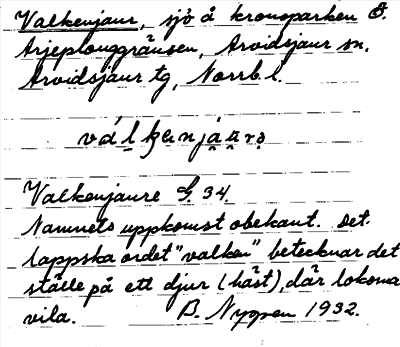 Valkenjaur, sjö å kronoparken Ö.
Arjeplouggränsen, Arvidsjaur sn.
Arvidsjaur tg, Norrb. l.
Valkenjaure G. 34.
Namnets uppkomst obekant. Det
lappska ordet "valken" betecknar det
ställe på ett djur (häst), där lokorna
vila. B. Nygren 1932.